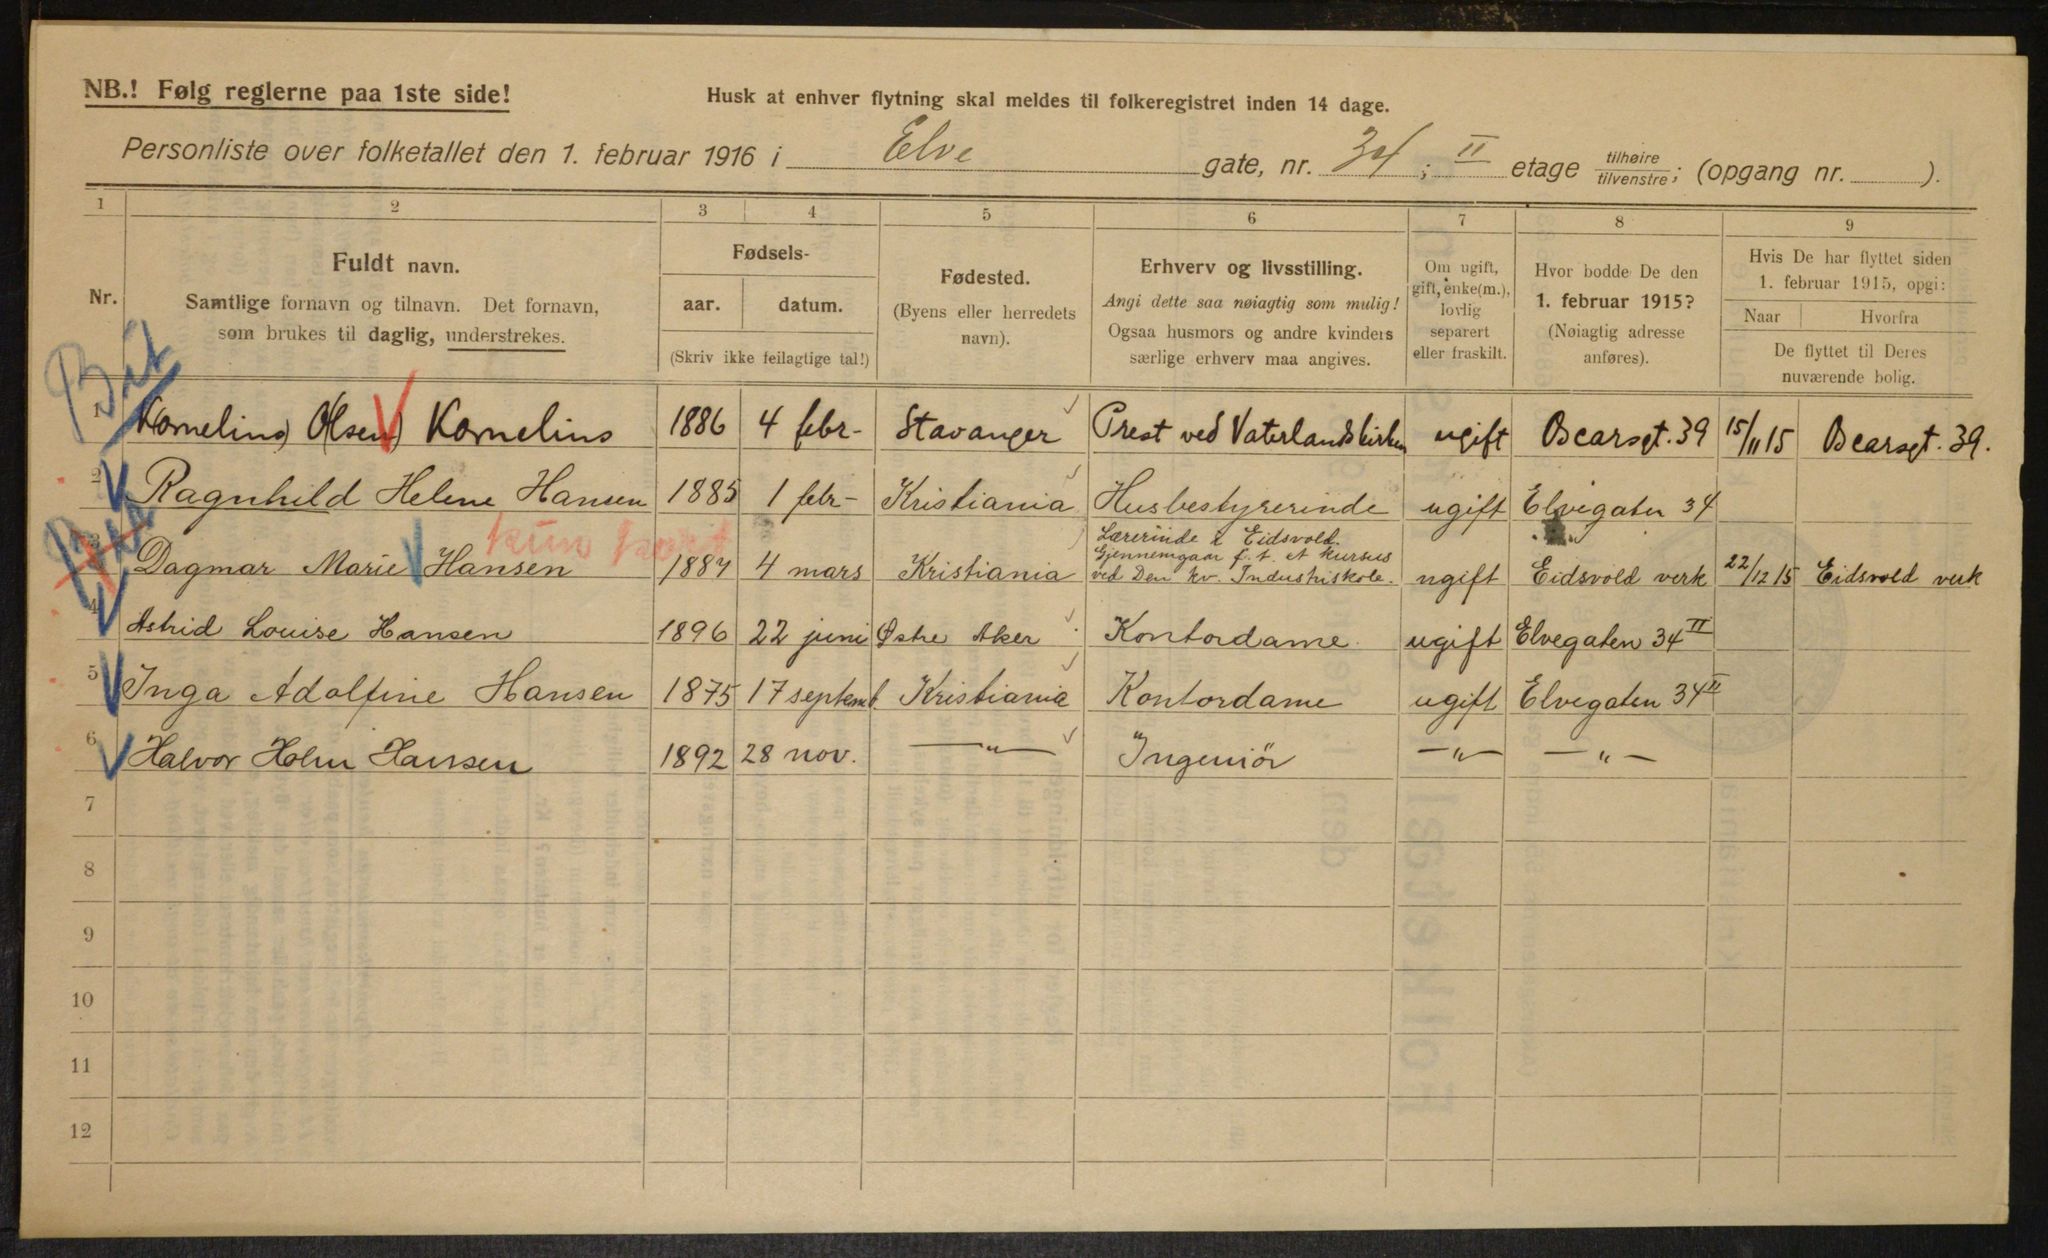 NB.! Følg reglerne paa 1ste side!
Husk at enhver flytning skal meldes til folkeregistret inden 14 dage.
Personliste over folketallet den 1. februar 1916 i Elve gate, nr. 34; II etage tilhøire/tilvenstre; (opgang nr. ).
1 2 3 4 5 6 7 8 9
Nr.
Fuldt navn.
Samtlige fornavn og tilnavn. Det fornavn,
som brukes til daglig, understrekes.
Fødsels-
aar. datum.
(Skriv ikke feilagtige tal!)
Fødested.
(Byens eller herredets
navn).
Erhverv og livsstilling.
Angi dette saa nøiagtig som mulig!
Ogsaa husmors og andre kvinders
særlige erhverv maa angives.
Om ugift,
gift, enke(m.),
lovlig
separert
eller fraskilt.
Hvor bodde De den
1. februar 1915?
(Nøiagtig adresse
anføres).
Hvis De har flyttet siden
1. februar 1915, opgi:
Naar Hvorfra
De flyttet til Deres
nuværende bolig.
1 Kornelius) Olsen) Kornelius 1886 4 febr- Stavanger Prest ved Vaterlandskirken ugift Oscarsgt. 39 15/11 15 Oscarsgt. 39.
2 Ragnhild Helene Hansen 1885 1 febr- Kristiania Husbestyrerinde ugift Elvegaten 34
kun
Lærerinde i Eidsvold.
Gjennemgaar f. t. et kursus
3 Dagmar Marie Hansen 1887 4 mars Kristiania ved Den kv. Industriskole. ugift Eidsvold verk 22/12 15 Eidsvold verk
4 Astrid Louise Hansen 1896 22 juni Østre Aker Kontordame. ugift Elvegaten 34 II
5 Inga Adolfine Hansen 1875 17 septemb. Kristiania Kontordame ugift Elvegaten 34 II
6 Halvor Holm Hansen 1892 28 nov. —"— Ingeniör —"— —"—
7
8
9
10
11
12